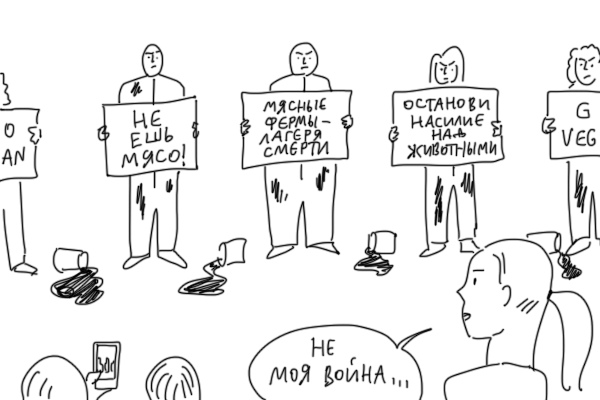 O
AN
НЕ
ЕШЬ
МЯСО!
МЯСНЫЕ
ФЕРМЫ-
ЛАГЕРЯ
СМЕРТИ
ОСТАНОВИ
НАСИЛИЕ
НАД
ЖИВОТНЫМИ
G
VEG
НЕ
МОЯ ВОЙНА...